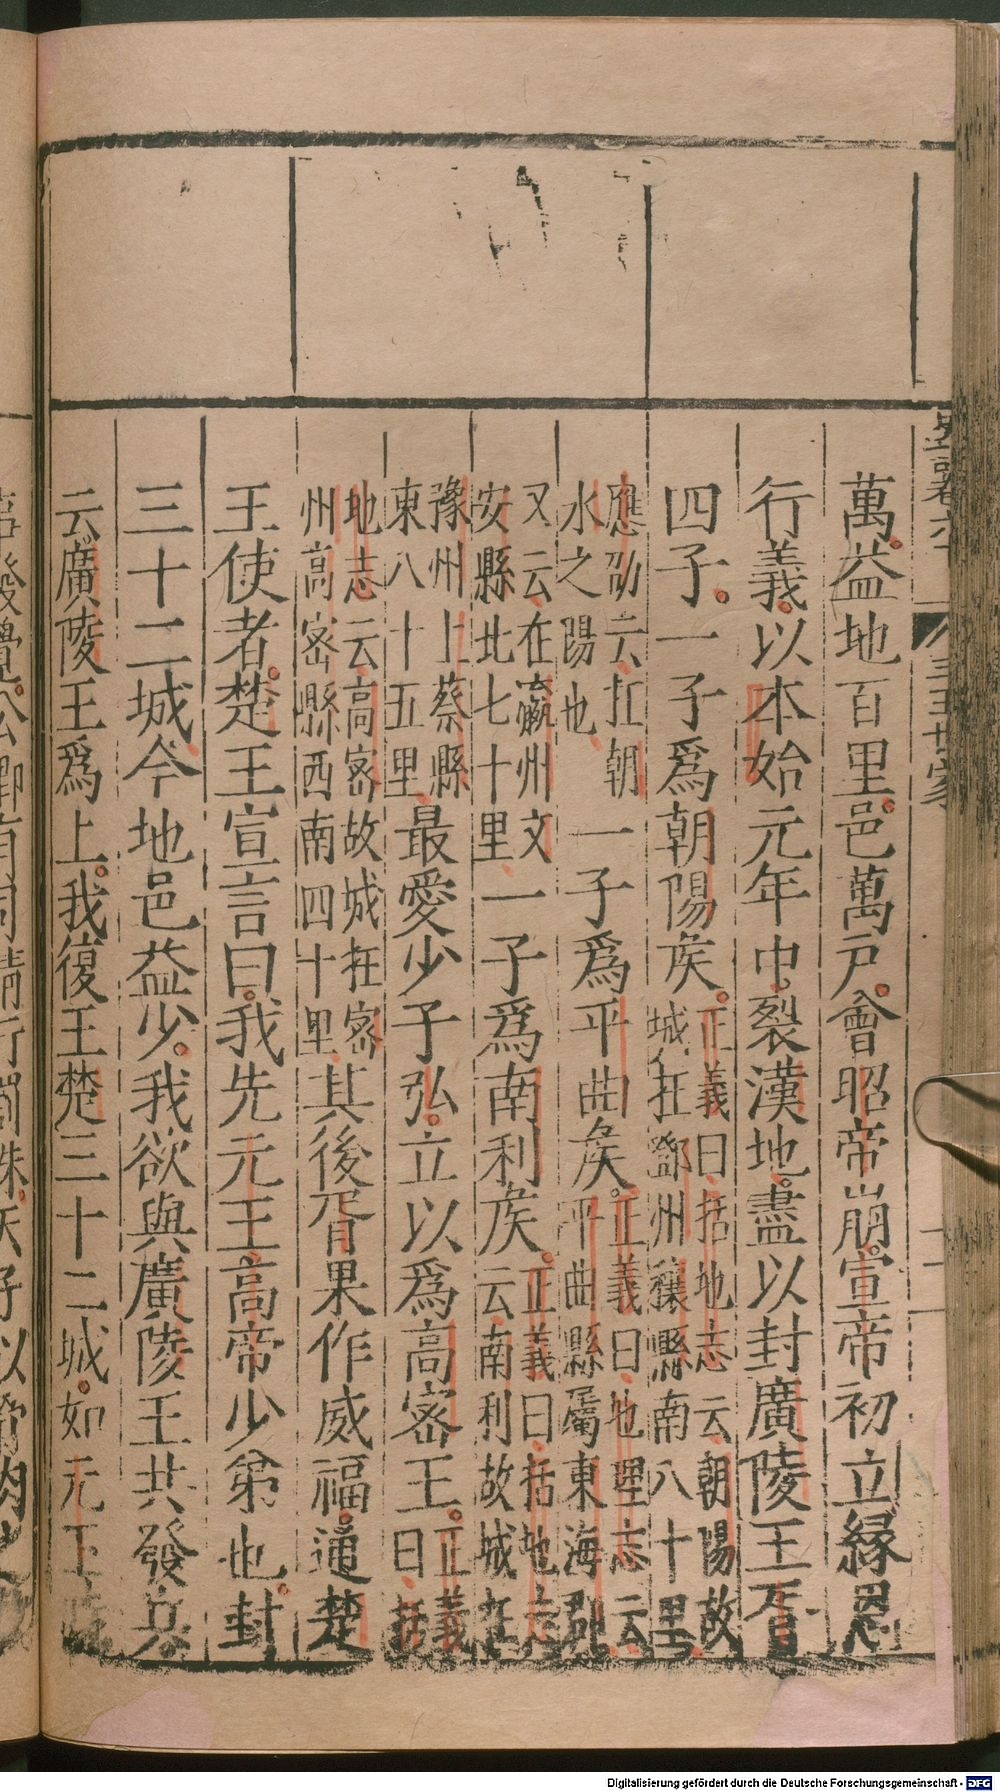 萬益地百里邑萬戶會昭帝崩宣帝初立緣恩
行義以本始元年中裂漢地盡以封廣陵王胥
四子一子爲朝陽侯正義曰括地志云朝陽故
城在鄧州穰縣南八十里
應劭云在朝
水之陽也
一子爲平曲侯正義曰地理志云
平曲縣屬東海郡
又云在瀛州文
安縣北七十里
一子爲南利侯正義曰括地志
云南利故城在
豫州上蔡縣
東八十五里
最愛少子弘立以爲高密王正義
曰括
地志云高密故城在密
州高密縣西南四十里
其後胥果作威福通楚
王使者楚王宣言曰我先元王高帝少弟也封
三十二城今地邑益少我欲與廣陵王共發兵
云廣陵王爲上我復王楚三十二城如元王
三王世家
十二
Digitalisierung gefördert durch die Deutsche Forschungsgemeinschaft - DFG